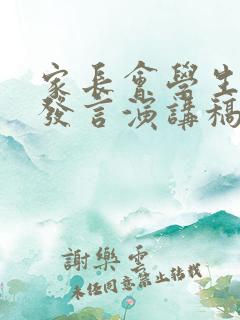 家長會學生
發言演講稿
謝樂雲
未經同意禁止轉載